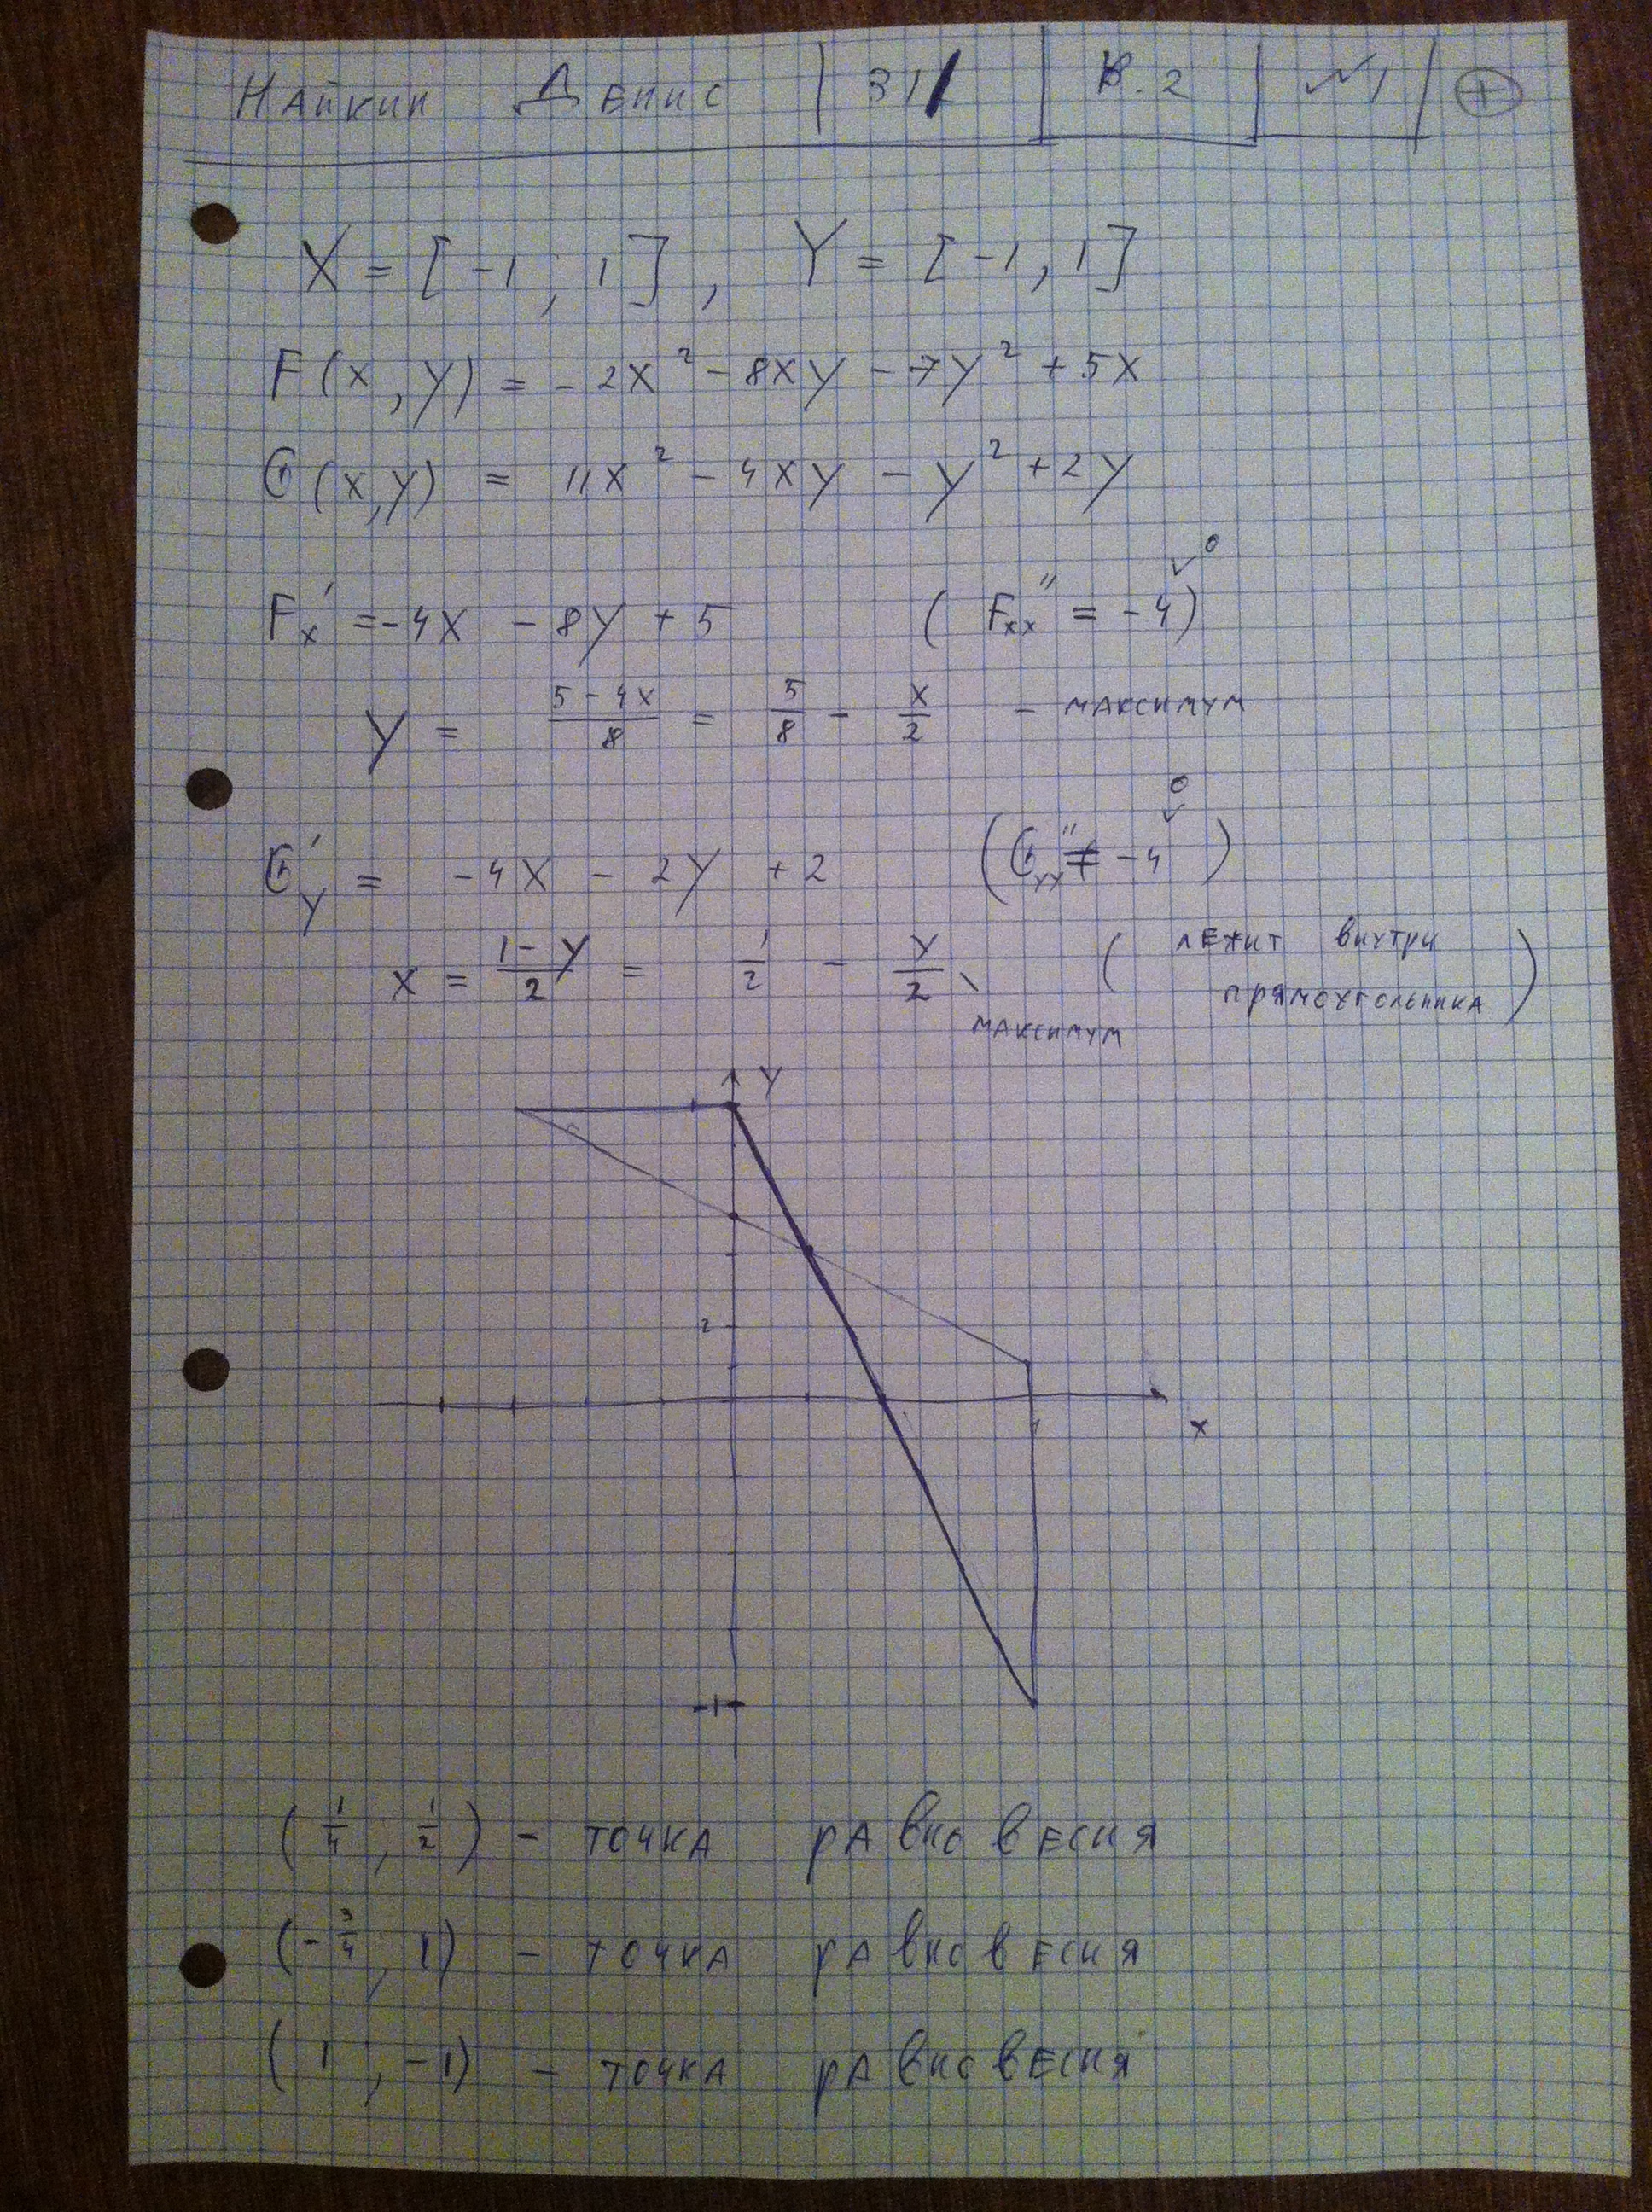 Найкин Денис | 311 | В.2 | №1 | +
X = [-1, 1], Y = [-1, 1]
F(x, y) = -2x² - 8xy - 7y² + 5x
G(x,y) = 11x² - 4xy - y² + 2y
0
F'ₓ = -4x - 8y + 5 (F''ₓₓ = -4)
y = (5-4x)/8 = 5/8 - x/2 - максимум
0
G'ᵧ = -4x - 2y + 2 (G''ᵧᵧ ≠ -4)
x = (1-y)/2 = 1/2 - y/2, (лежит внутри
прямоугольника)
максимум
y
2
x
-1
(1/4, 1/2) - точка равновесия
(-3/4, 1) - точка равновесия
(1, -1) - точка равновесия